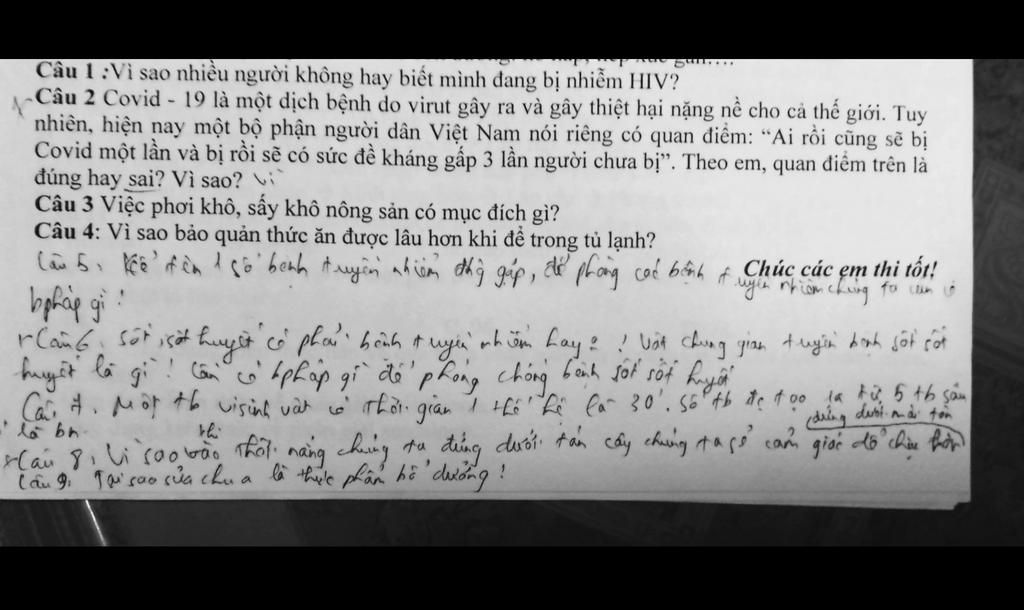 Câu 1 :Vì sao nhiều người không hay biết mình đang bị nhiễm HIV?
Câu 2 Covid - 19 là một dịch bệnh do virut gây ra và gây thiệt hại nặng nề cho cả thế giới. Tuy
nhiên, hiện nay một bộ phận người dân Việt Nam nói riêng có quan điểm: “Ai rồi cũng sẽ bị
Covid một lần và bị rồi sẽ có sức đề kháng gấp 3 lần người chưa bị”. Theo em, quan điểm trên là
đúng hay sai? Vì sao? Vì
Câu 3 Việc phơi khô, sấy khô nông sản có mục đích gì?
Câu 4: Vì sao bảo quản thức ăn được lâu hơn khi để trong tủ lạnh?
Chúc các em thi tốt!
Câu 5, Kể tên 1 số bệnh truyền nhiễm thg gặp, để phòng các bệnh truyền nhiễm chúng ta cần có
bpháp gì !
Câu 6, sốt sốt huyết có phải bệnh truyền nhiễm hay ! Vật chung gian truyền bệnh sốt sốt
huyết là gì ! Cần có bpháp gì để phòng chống bệnh sốt sốt huyết
Câu 7. Một tb visinh vật có thời gian 1 thế hệ là 30'. Số tb đc tạo ra từ 5 tb sau
là bn.
đứng dưới mái tôn
Câu 8, Vì sao vào thời nắng khi chúng ta đứng dưới tán cây chúng ta sẽ cảm giác dễ chịu hơn
Câu 9, Tại sao sửa chua là thực phẩm bổ dưỡng !